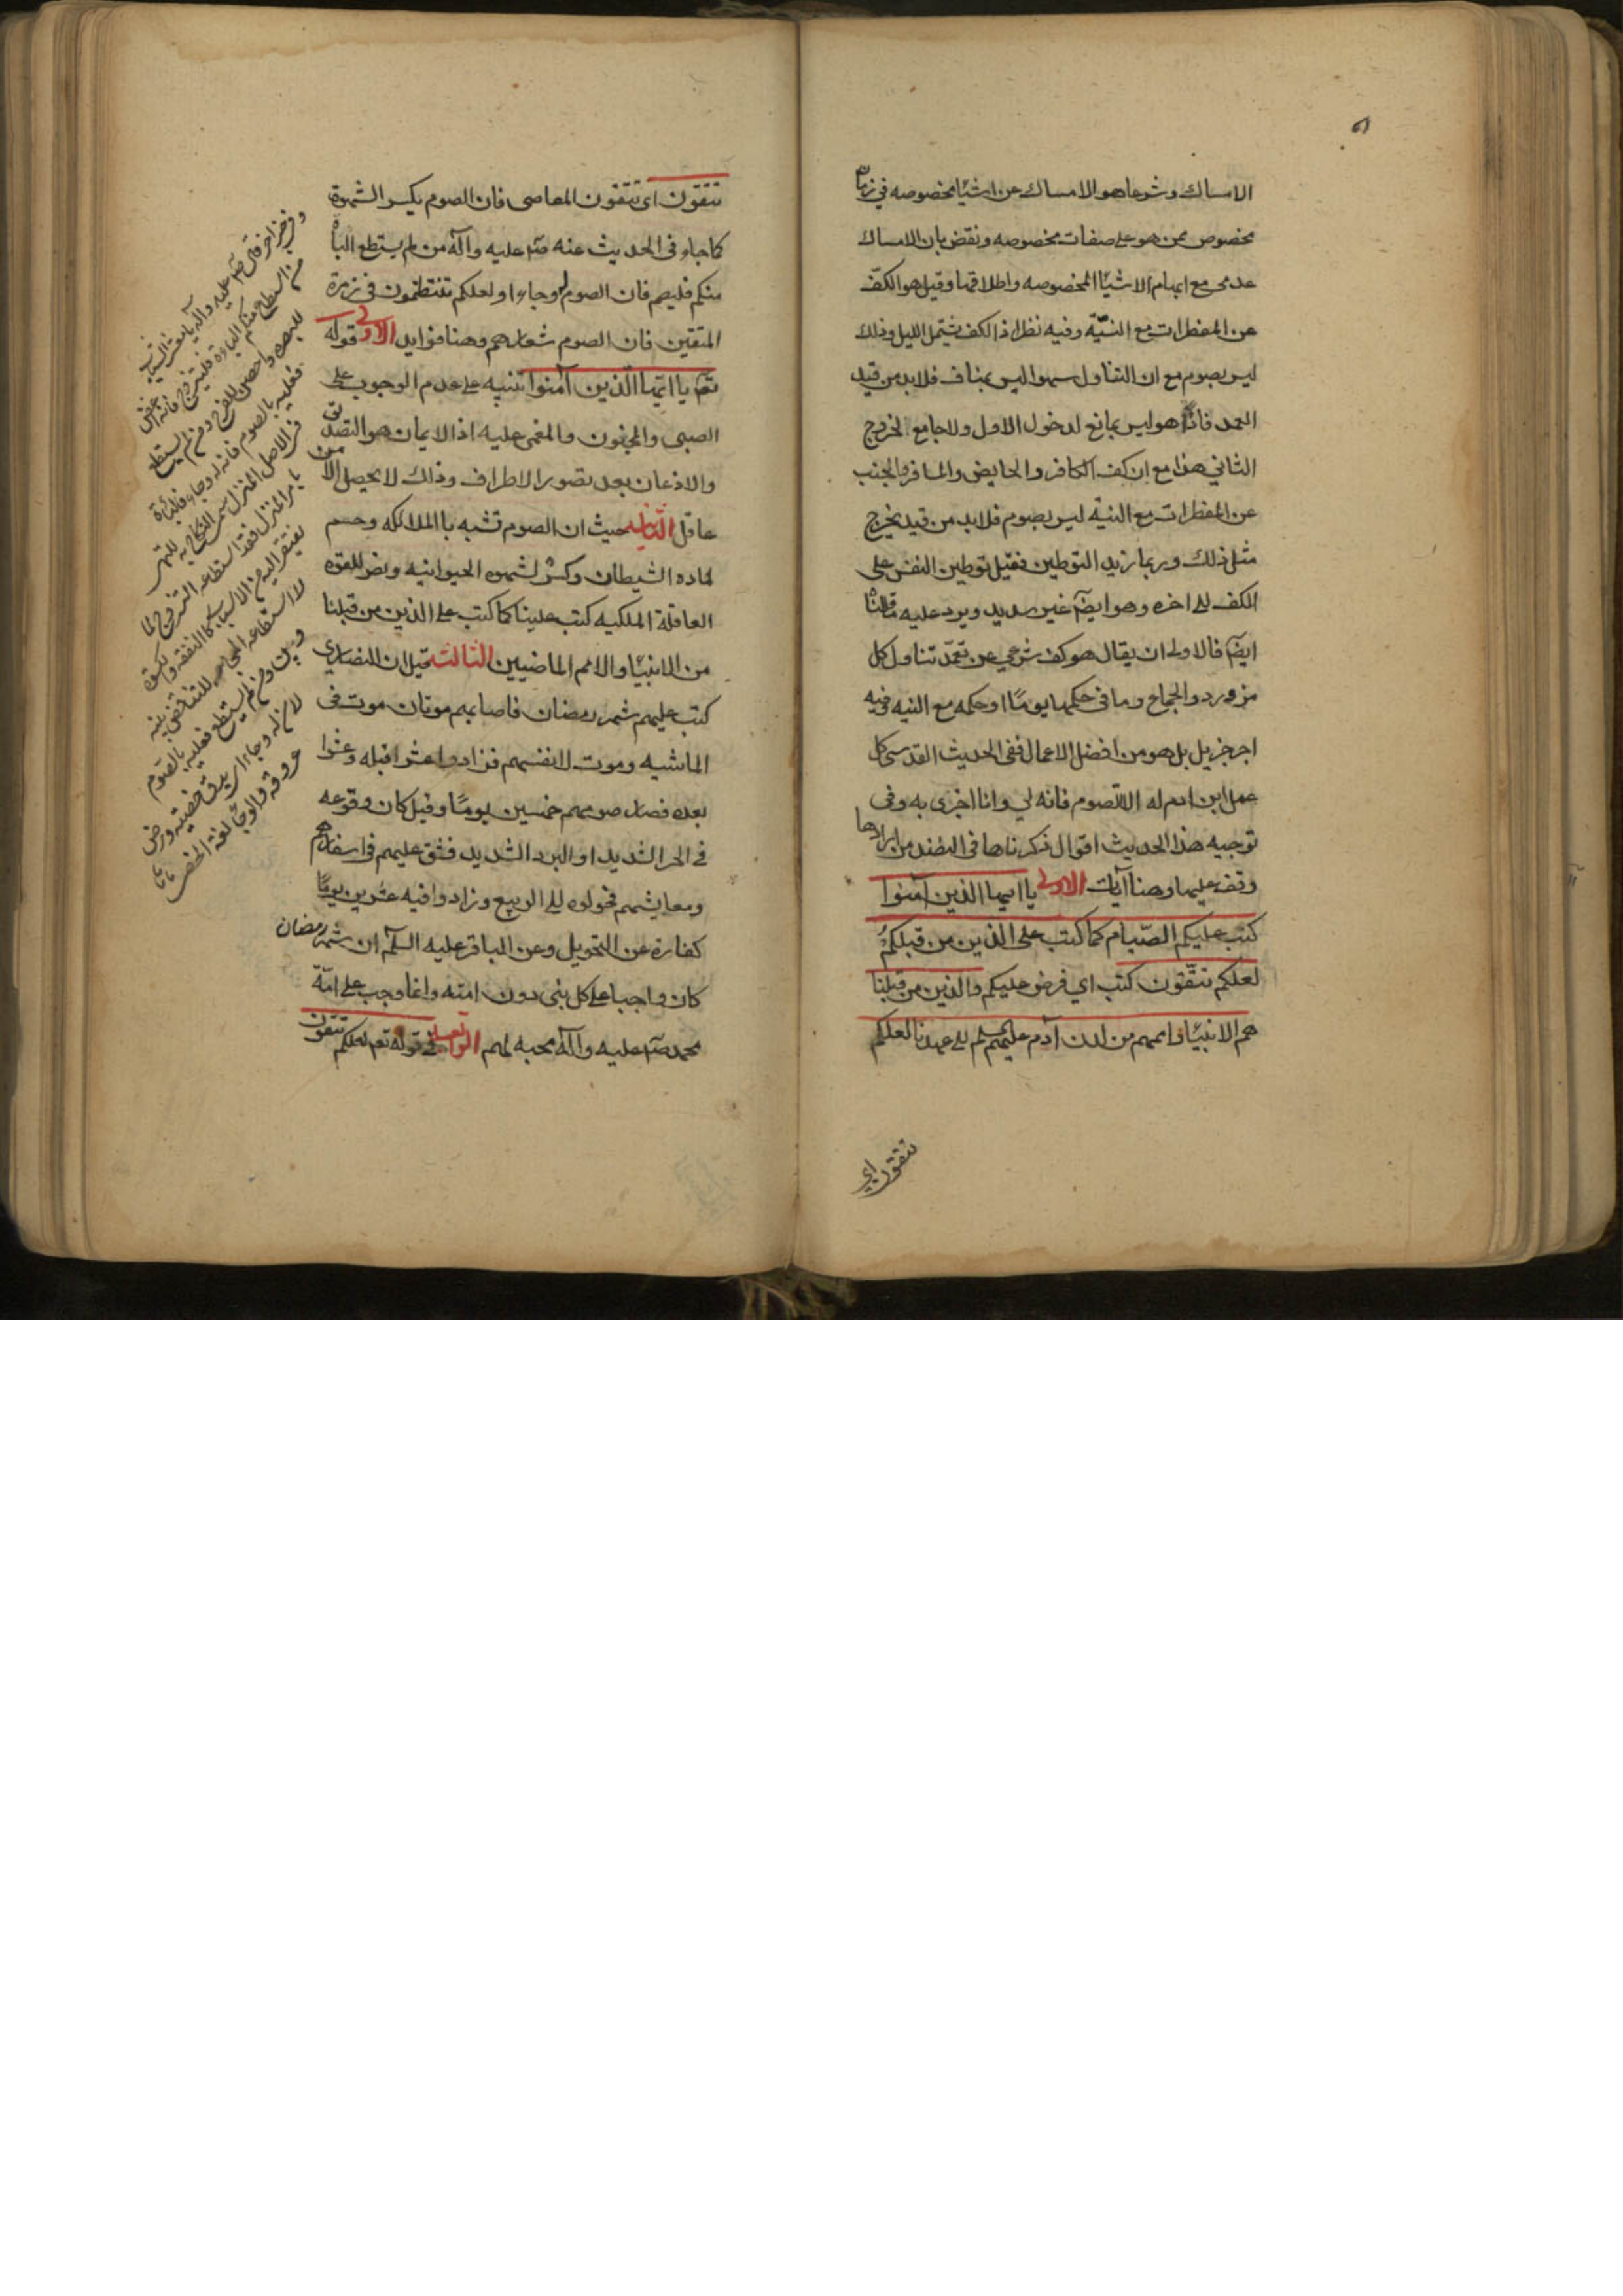 الامساك وشرعا هو الامساك عن اشيا مخصوصه في زمان
مخصوص ممن هو على صفات مخصوصه ونقض بان الامساك
عدمى مع ابهام الاشيا المخصوصه واطلاقها وقيل هو الكف
عن المفطرات مع النيّة وفيه نظر اذ الكف يشتمل الليل وذلك
ليس بصوم مع ان التناول سهوا ليس بمناف فلابد من قيد
العمد فاذًا هو ليس بمانع لدخول الاول ولا جامع لخروج
الثاني هذا مع ان كف الكافر والحايض والمسافر والجنب
عن المفطرات مع النية ليس بصوم فلابد من قيد يخرج
مثل ذلك وربما زيد التوطين فقيل توطين النفس على
الكف الى اخره وهو ايضًا غير سديد ويرد عليه ما قلناه
ايضًا فالاولى ان يقال هو كف شرعي عن تعمّد تناول كل
مزدرد والجماع وما في حكمهما يومًا او حكمه مع النيه وفيه
اجر جزيل بل هو من افضل الاعمال ففى الحديث القدسى كل
عمل ابن ادم له الا الصوم فانه لي وانا اجزى به وفى
توجيه هذا الحديث اقوال ذكرناها فى النضد من ارادها
وقف عليها وهنا آيات الاولى يا ايها الذين آمنوا
كتب عليكم الصّيام كما كتب على الذين من قبلكم
لعلكم تتّقون كتب اي فرض عليكم والذين من قبلنا
هم الانبيا واممهم من لدن آدم عليهم السلم الى عهدنا لعلكم
تتقون اي
تتقون اى تتقون المعاصى فان الصوم يكسر الشهوة
كما جاء فى الحديث عنه صلى عليه وآله من لم يستطع الباه
منكم فليصم فان الصوم له وجاء او لعلكم تنتظمون فى زمرة
المتقين فان الصوم شعارهم وهنا فوايد الاولى قوله
تعم يا ايّها الّذين آمنوا تنبيه على عدم الوجوب على
الصبى والمجنون والمغمى عليه اذ الايمان هو التصديق
والاذعان بعد تصور الاطراف وذلك لا يحصل الا من
عاقل الثانيه حيث ان الصوم تشبه باالملائكه وحسم
لماده الشيطان وكسر لشهوه الحيوانيه ونصر للقوه
العاقلة الملكيه كتب علينا كما كتب على الذين من قبلنا
من الانبيا والامم الماضيين الثالثه قيل ان النصارى
كتب عليهم شهر رمضان فاصابهم موتان موت فى
الماشيه وموت لانفسهم فزادوا عشرا قبله وعشرا
بعده فصار صومهم خمسين يومًا وقيل كان وقوعه
في الحر الشديد او البرد الشديد فشق عليهم فى اسفارهم
ومعايشهم فحولوه الى الربيع وزادوا فيه عشرين يومًا
كفارة عن التحويل وعن الباقر عليه السلم ان شهر رمضان
كان واجبا على كل نبى دون امته وانما وجب على امّة
محمد صلى عليه وآله محبه لهم الرابعه في قوله تعم لعلكم تتقون
وفي خبر اخر قال صلى عليه وآله يا معشر الشباب
من استطاع منكم الباءة فليتزوج فانه اغض
للبصر واحصن للفرج ومن لم يستطع
فعليه بالصوم فانه له وجاء فالباءة
في الاصل المنزل سمى النكاح به